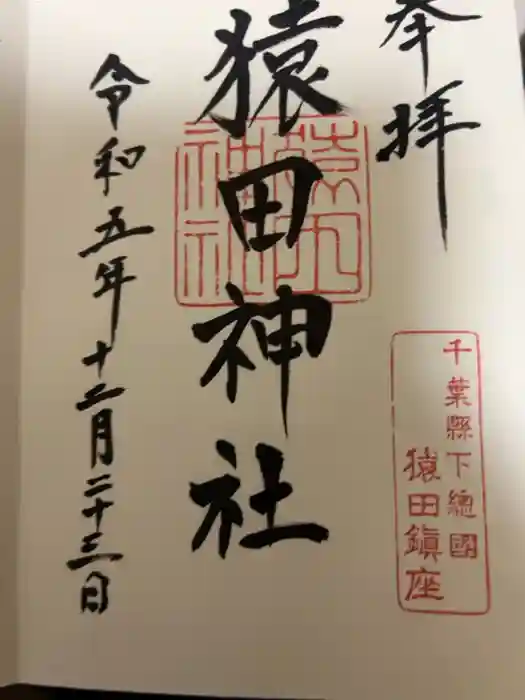 奉拝
千葉縣下總國
猿田鎮座
猿田神社
猿田
神社
令和五年十二月二十三日